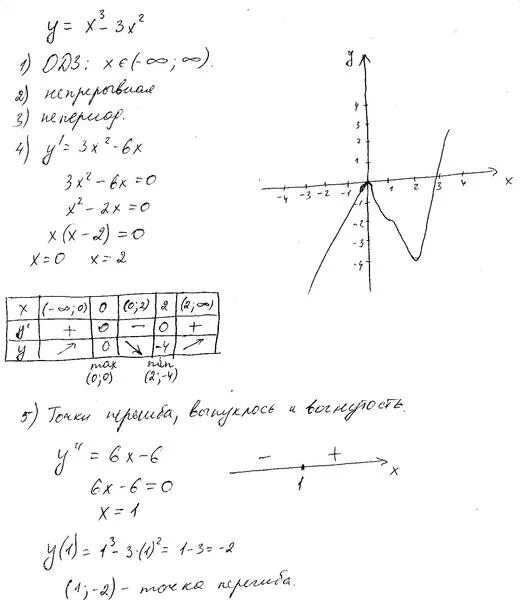 y = x³ - 3x²
1) ОДЗ: x ∈ (-∞; ∞).
2) непрерывная
3) непериод.
4) y' = 3x² - 6x
3x² - 6x = 0
x² - 2x = 0
x(x - 2) = 0
x = 0 x = 2
y
4
3
2
1
-4 -3 -2 -1 1 2 3 4 x
-1
-2
-3
-4
x (-∞; 0) 0 (0; 2) 2 (2; ∞)
y' + 0 - 0 +
y ↗ 0 ↘ -4 ↗
max min
(0; 0) (2; -4)
5) Точки перегиба, выпуклось и вогнутость.
y'' = 6x - 6
6x - 6 = 0
x = 1
- +
1 x
y(1) = 1³ - 3·(1)² = 1 - 3 = -2
(1; -2) - точка перегиба.